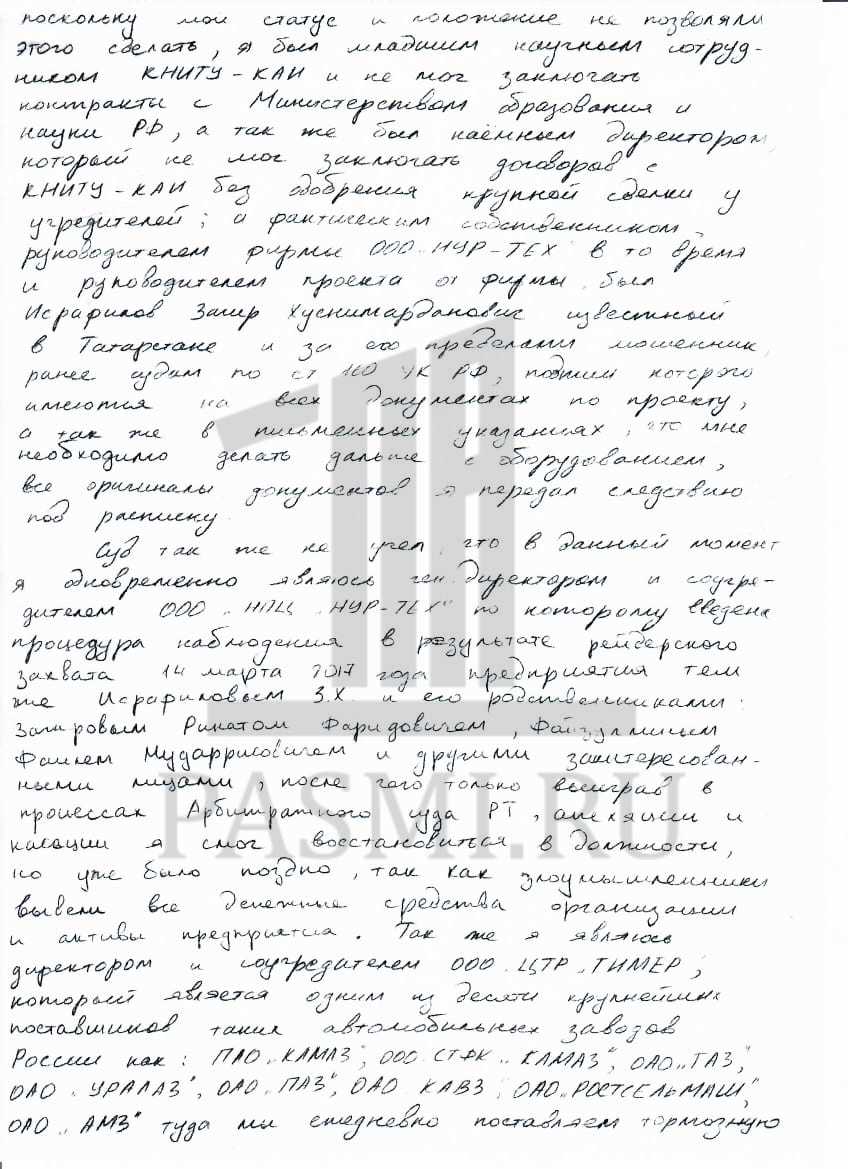 поскольку мой статус и положение не позволяли
этого сделать, я был младшим научным сотруд-
ником КНИТУ-КАИ и не мог заключать
контракты с Министерством образования и
науки РФ, а так же был наёмным директором,
который не мог заключать договоров с
КНИТУ-КАИ без одобрения крупной сделки у
учредителей; а фактическим собственником,
руководителем фирмы ООО "НУР-ТЕХ" в то время
и руководителем проекта от фирмы был
Исрафилов Загир Хуснимарданович известный
в Татарстане и за его пределами мошенник,
ранее судим по ст 160 УК РФ, подписи которого
имеются на всех документах по проекту,
а так же в письменных указаниях, что мне
необходимо делать дальше с оборудованием,
все оригиналы документов я передал следствию
под расписку.
Суд так же не учел, что в данный момент
я одновременно являюсь ген.директором и соучре-
дителем ООО "НПЦ "НУР-ТЕХ" по которому введена
процедура наблюдения в результате рейдерского
захвата 14 марта 2017 года предприятия тем
же Исрафиловым З.Х. и его родственниками:
Загировым Ринатом Фаридовичем, Файзуллиным
Фаилем Мударрисовичем и другими заинтересован-
ными лицами, после чего только выиграв в
процессах Арбитражного суда РТ, апеляции и
касации я смог восстановиться в должности,
но уже было поздно, так как злоумышленники
вывели все денежные средства организации
и активы предприятия. Так же я являюсь
директором и соучредителем ООО ЦТР "ТИМЕР",
который является одним из десяти крупнейших
поставщиков таких автомобильных заводов
России как: ПАО "КАМАЗ", ООО СТФК "КАМАЗ", ОАО "ГАЗ",
ОАО "УРАЛАЗ", ОАО "ПАЗ", ОАО КАВЗ, ОАО "РОСТСЕЛЬМАШ",
ОАО "АМЗ" туда мы ежедневно поставляем тормозную
PASMI.RU